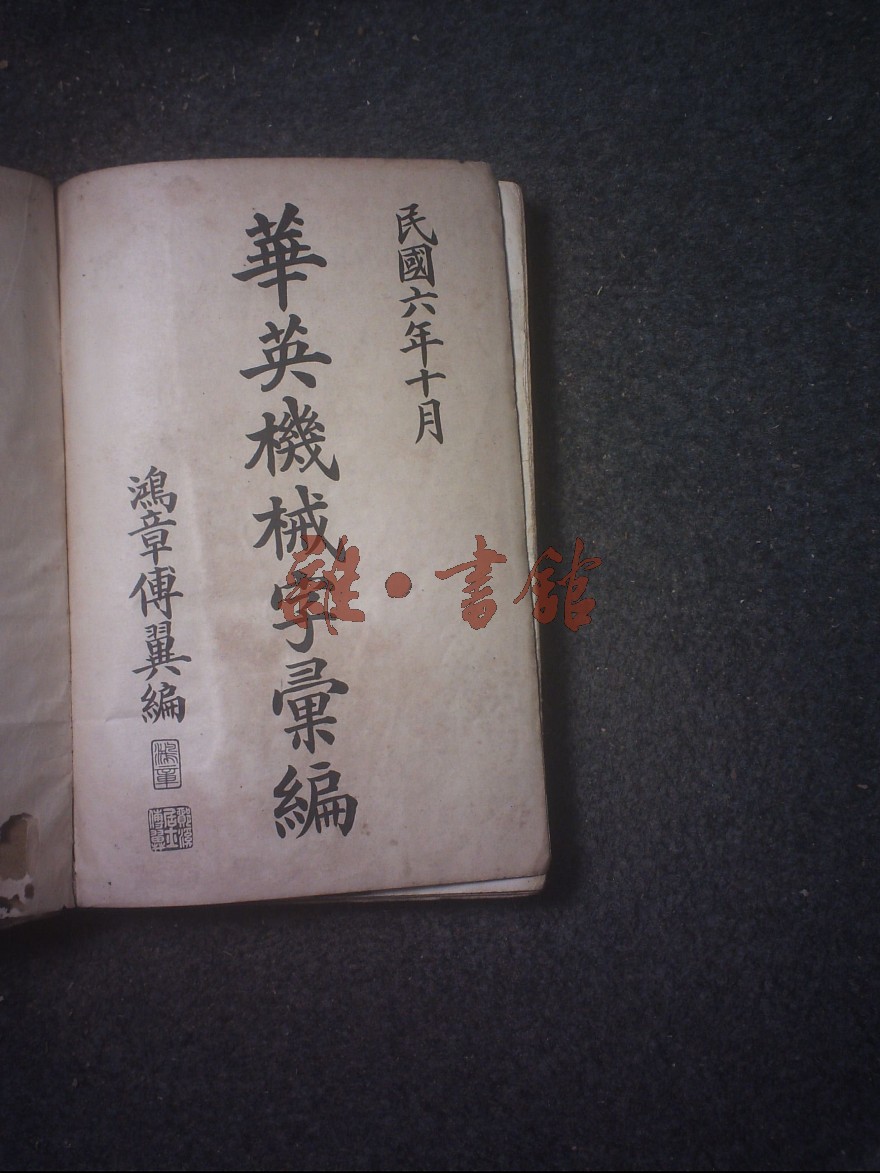 民國六年十月
華英機械字彙編
鴻章傅翼編
鴻章
雜·書館